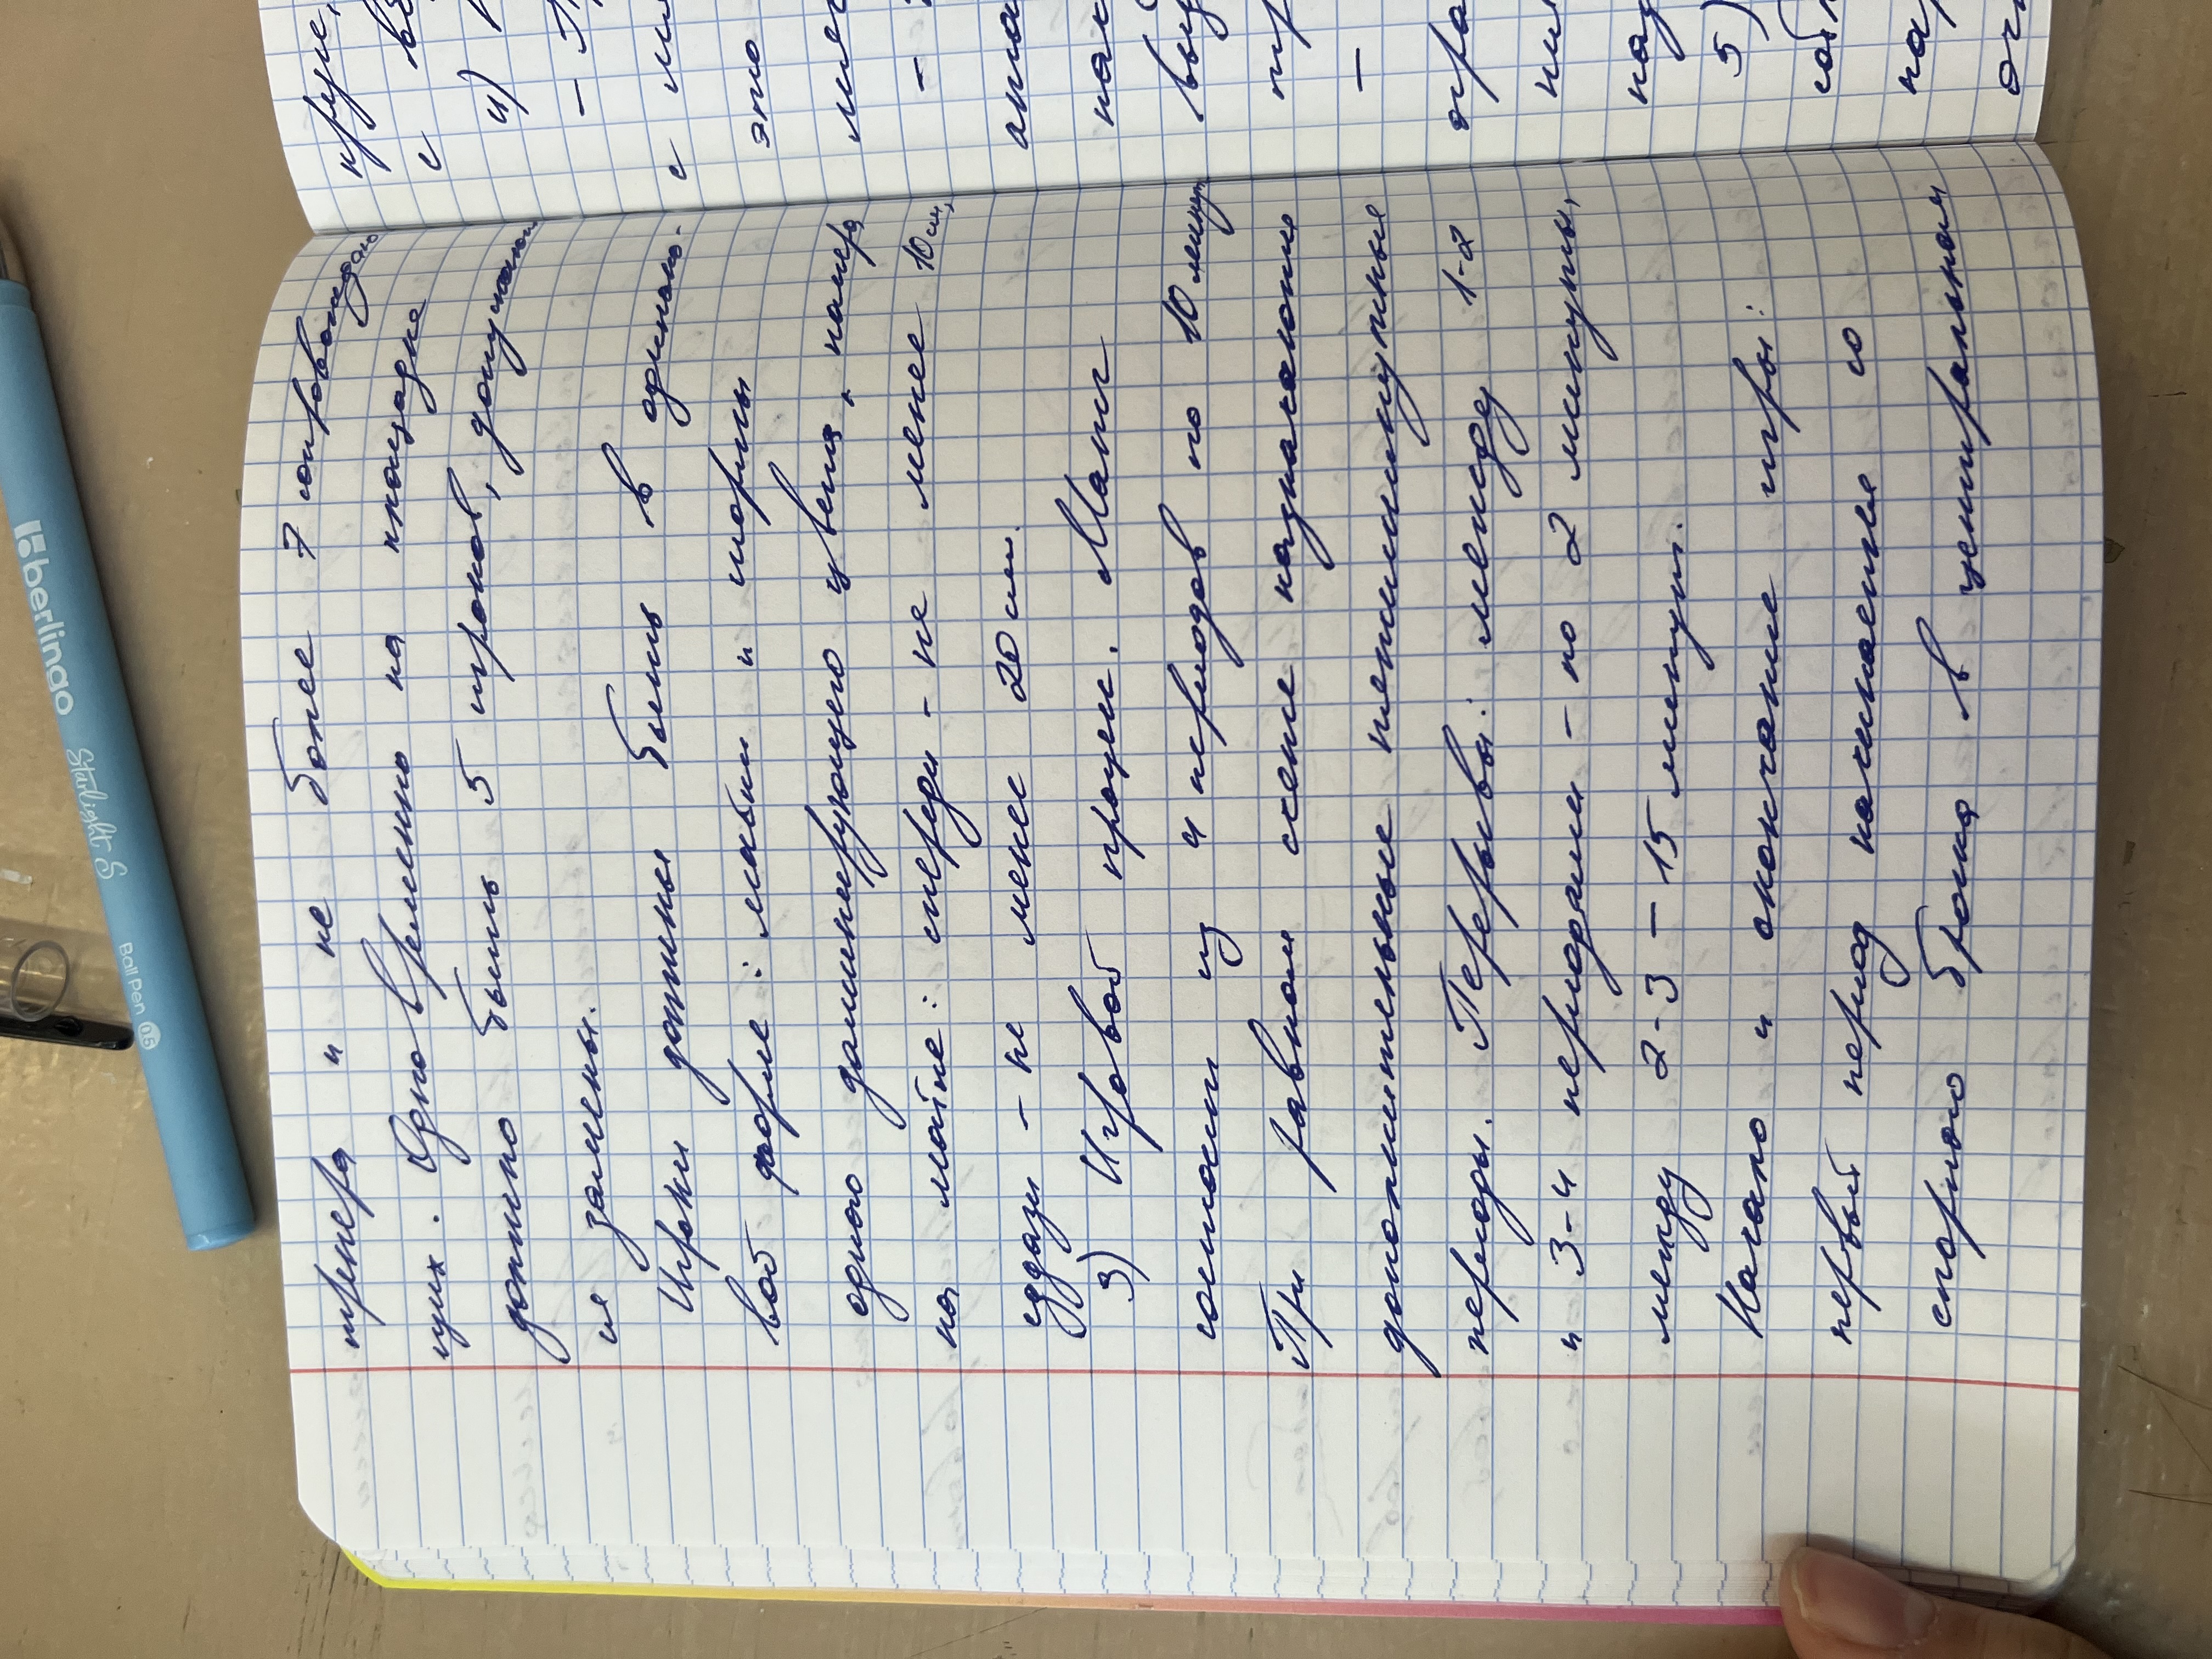 тренера и не более 7 сопровождаю
щих. Одновременно на площадке
должно быть 5 игроков, допускают
ся замены.
Игроки должны быть в одинако-
вой форме: майки и шорты
одного доминирующего цвета, номера
на майке: спереди - не менее 10 см,
сзади - не менее 20 см.
3) Игровой процесс. Матч
состоит из 4 периодов по 10 минут
При равном счёте назначаются
дополнительные пятиминутные
периоды. Перерывы: между 1-2
и 3-4 периодами - по 2 минуты,
между 2-3 - 15 минут.
Начало и окончание игры:
первый период начинается со
спорного броска в центральном
круге,
с
4)
-
с
это
-
-
5)
berlingo Starlight S Ball Pen 0.5